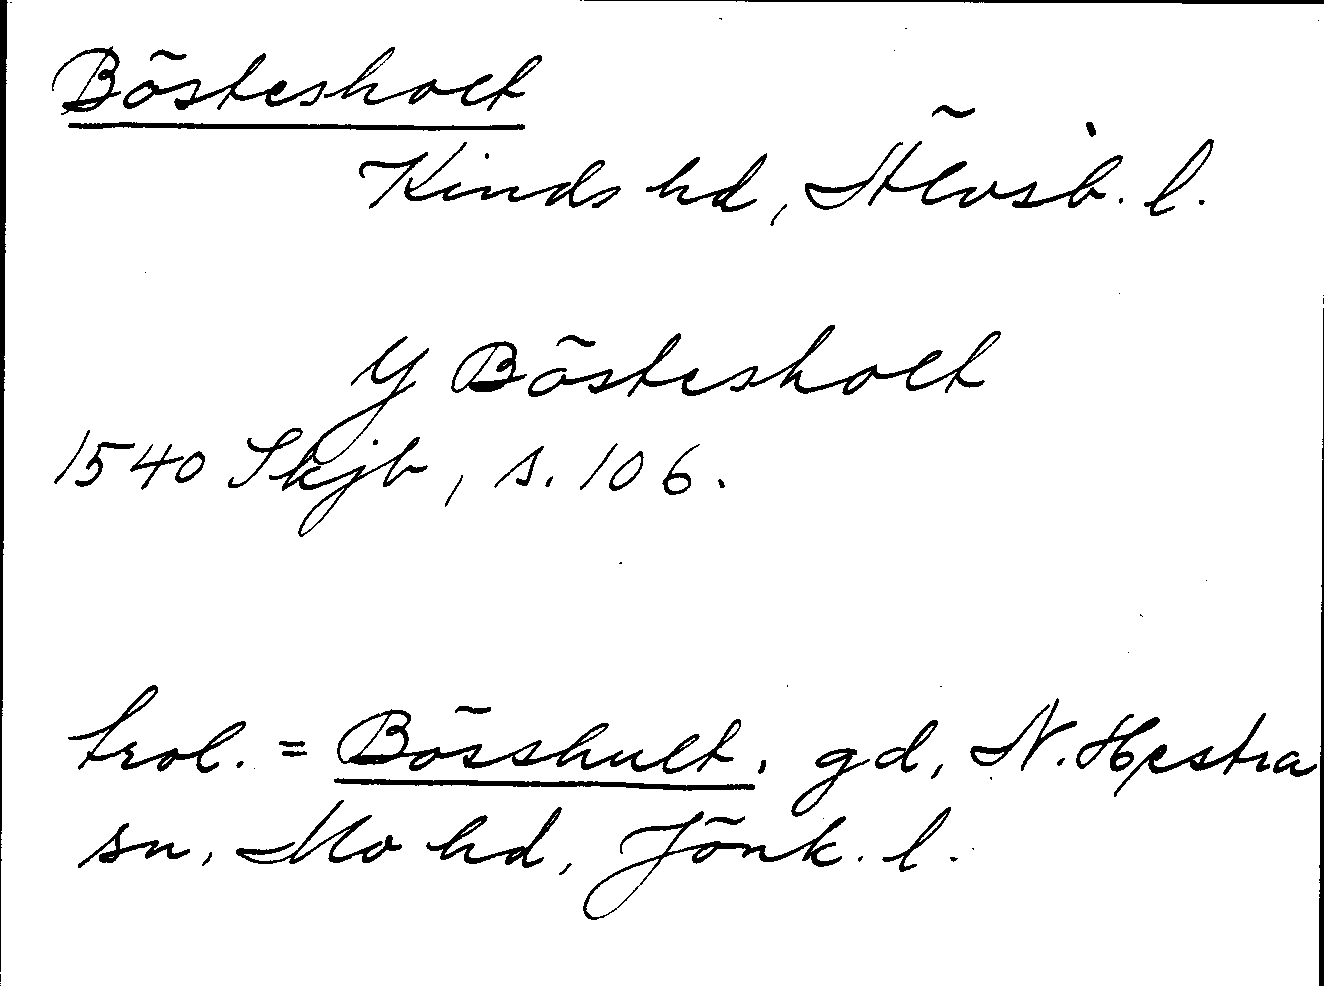 Böstesholt
Kinds hd, Älvsb. l.
Y Böstesholt
1540 Skjb, s. 106.
trol. = Bösshult, gd, N. Hestra
sn, Mo hd, Jönk. l.